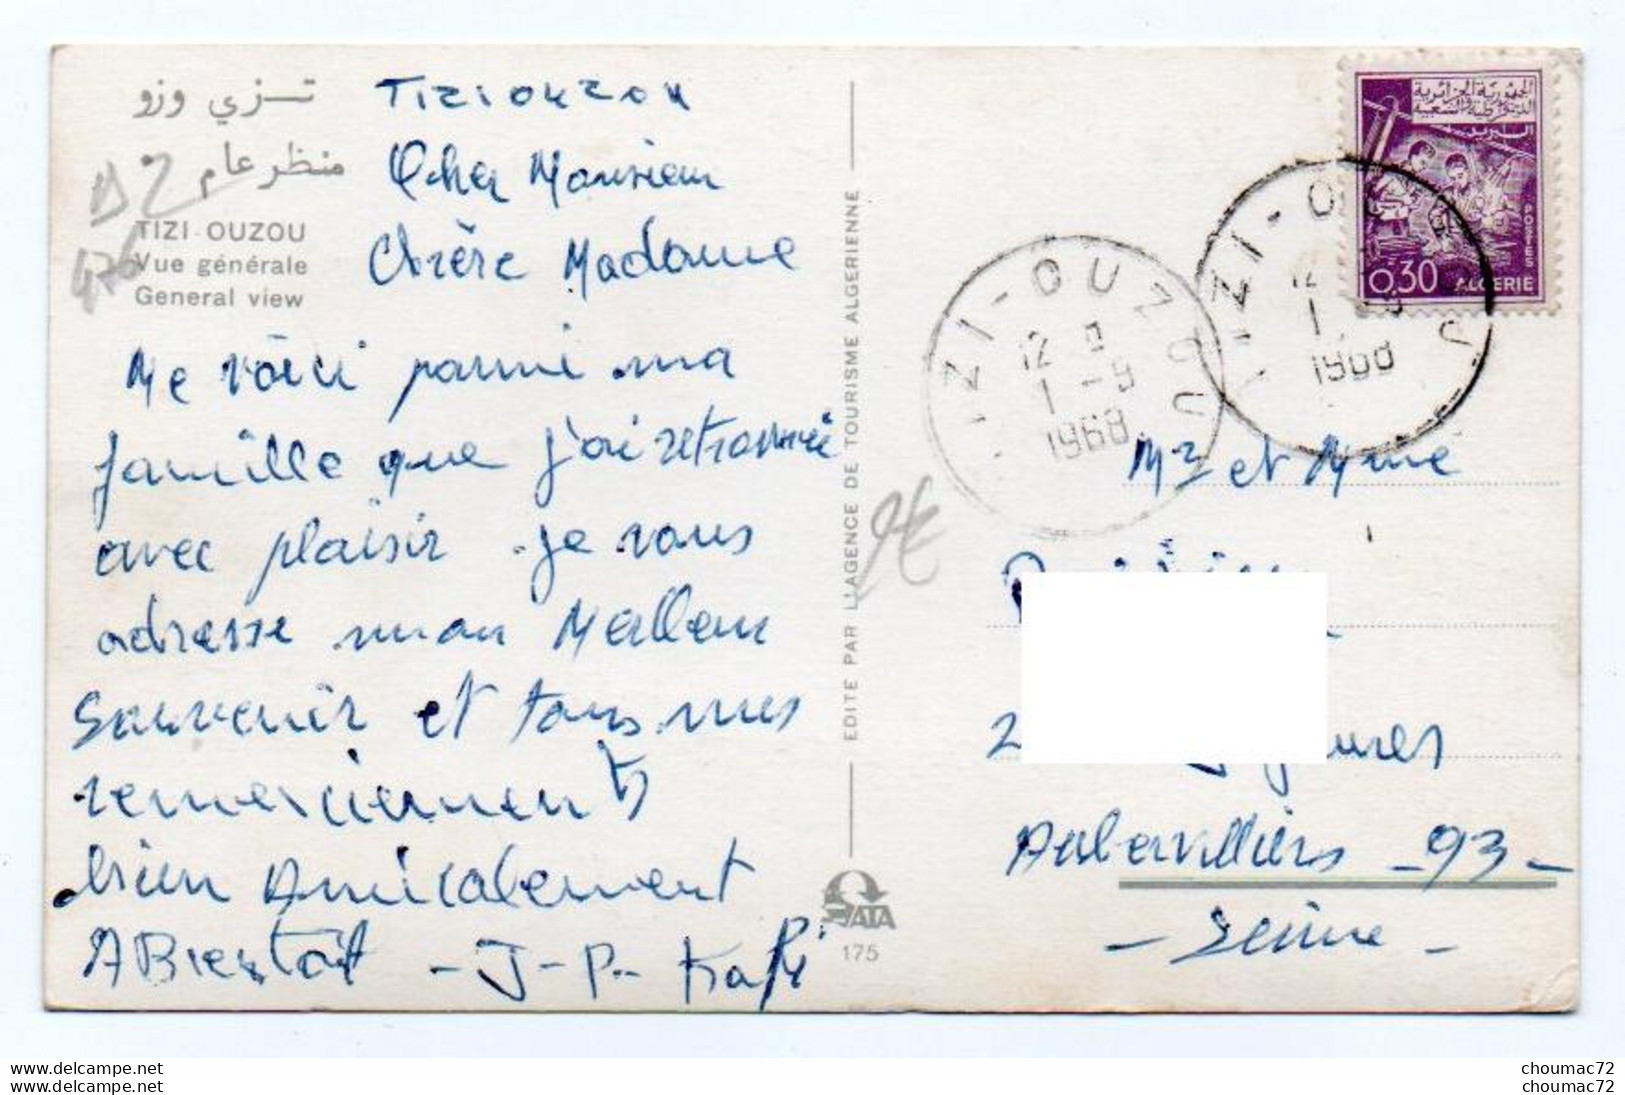 تـزي وزو
منظر عام
TIZI-OUZOU
Vue générale
General view
DZ
476
TIZIOUZOU
Cher Monsieur
Chrère Madame
Me voici parmi ma
famille que j'ai retrouvé
avec plaisir. je vous
adresse mon Meilleur
Souvenir et tous mes
remerciements
bien Amicalement
A Bientôt - J-P- Kafi
EDITE PAR L'AGENCE DE TOURISME ALGERIENNE
ATA
175
الجمهورية الجزائرية
الديمقراطية والشعبية
البريد
POSTES
0,30 ALGERIE
TIZI-OUZOU
12
1 -9
1968
TIZI-OUZOU
12
1 -9
1968
Mr et Mme
2
Aubervilliers -93-
- Seine -
choumac72
choumac72
choumac72
choumac72